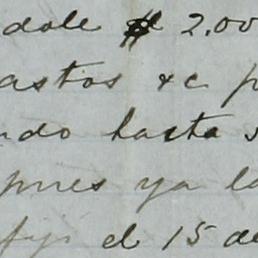 dole $ 2.00
astos &c p
ndo hasta s
pues ya la
fijo el 15 de